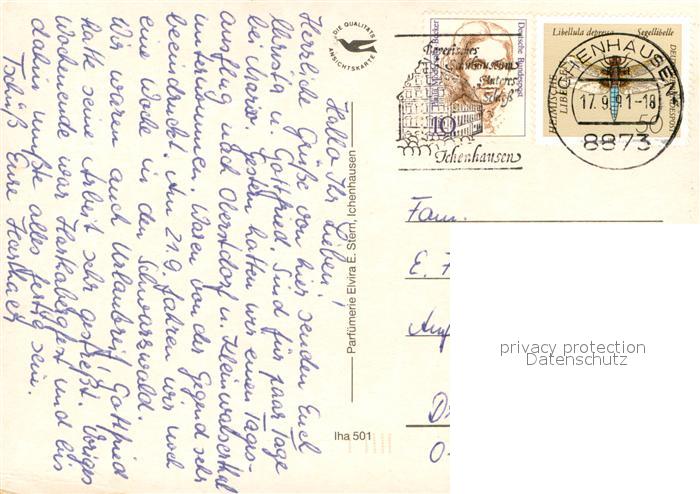 Hallo Ihr Lieben!
Herzliche Grüße von hier senden Euch
Christa u. Gottfried. Sind für paar Tage
bei Mario. Gestern hatten wir einen Tages-
ausflug nach Oberstdorf u. Kleinwalsertal
unternommen. Waren von der Gegend sehr
beeindruckt. Am 21.9. fahren wir noch
eine Woche in den Schwarzwald.
Wir waren auch Urlaubreif, Gottfried
hatte seine Arbeit sehr gestreßt. Voriges
Wochenende war und bis
dahin mußte alles fertig sein.
Tschüß Eure
DIE QUALITÄTS
ANSICHTSKARTE
Parfümerie Elvira E. Stern, Ichenhausen
Iha 501
Bayerisches
Schulmuseum
"Unteres
Schloß"
Ichenhausen
Deutsche Bundespost
10
Libellula depressa Segellibelle
HEIMISCHE
LIBELLEN
50
ICHENHAUSEN
17.9.91-18
8873
Fam.
E.
O-
privacy protection
www.oldthing.de